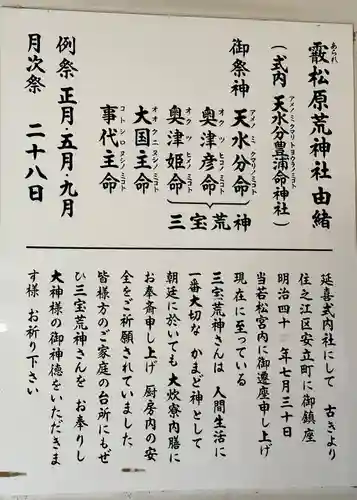 霰松原荒神社 由緒
あられ
(式内 天水分豊浦命神社)
アメノミクマリトヨウラミコト
御祭神 天水分命
アメノミクマリノミコト
奥津彦命
オクツヒコノミコト
奥津姫命
オクツヒメノミコト
三宝荒神
大国主命
オオクニヌシノミコト
事代主命
コトシロヌシノミコト
例祭 正月・五月・九月
月次祭 二十八日
延喜式内社にして 古きより
住之江区安立町に御鎮座
明治四十 年七月三十日
当若松宮内に御遷座申し上げ
現在に至っている
三宝荒神さんは 人間生活に
一番大切な かまど神として
朝廷に於いても 大炊寮内膳に
お奉斎申し上げ 厨房内の安
全をご祈願されていました、
皆様方のご家庭の台所にもぜ
ひ三宝荒神さんを お奉りし
大神様の御神徳をいただきま
す様 お祈り下さい